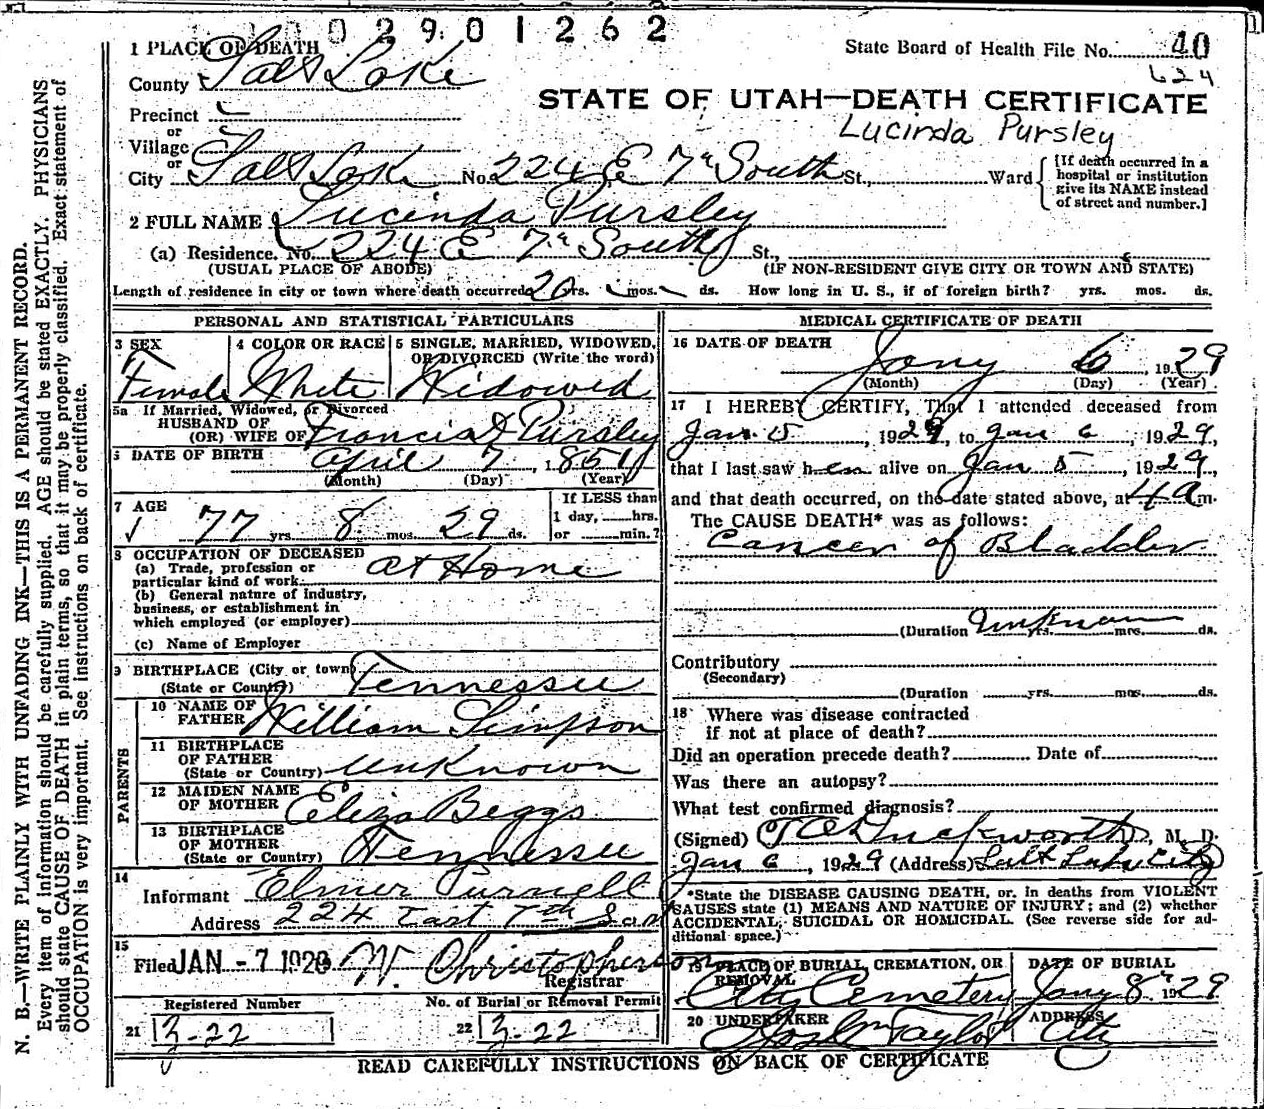 0 2 9 0 1 2 6 2
1 PLACE OF DEATH
State Board of Health File No. 40
624
County Salt Lake
STATE OF UTAH—DEATH CERTIFICATE
Lucinda Pursley
Precinct
or
Village
or
City Salt Lake No. 224 E 7th South St., Ward
[If death occurred in a
hospital or institution
give its NAME instead
of street and number.]
2 FULL NAME Lucinda Pursley
(a) Residence. No. 224 E 7th South St.,
(USUAL PLACE OF ABODE) (IF NON-RESIDENT GIVE CITY OR TOWN AND STATE)
Length of residence in city or town where death occurred 20 yrs. mos. ds. How long in U. S., if of foreign birth? yrs. mos. ds.
PERSONAL AND STATISTICAL PARTICULARS
3 SEX
Female
4 COLOR OR RACE
White
5 SINGLE, MARRIED, WIDOWED,
OR DIVORCED (Write the word)
Widowed
5a If Married, Widowed, or Divorced
HUSBAND OF
(OR) WIFE OF Francis J Pursley
6 DATE OF BIRTH April 7, 1851
(Month) (Day) (Year)
7 AGE
77 yrs 8 mos. 29 ds.
If LESS than
1 day, hrs.
or min.?
8 OCCUPATION OF DECEASED
(a) Trade, profession or
particular kind of work at Home
(b) General nature of industry,
business, or establishment in
which employed (or employer)
(c) Name of Employer
9 BIRTHPLACE (City or town)
(State or Country) Tennessee
PARENTS
10 NAME OF
FATHER William Simpson
11 BIRTHPLACE
OF FATHER
(State or Country) unknown
12 MAIDEN NAME
OF MOTHER Eliza Beggs
13 BIRTHPLACE
OF MOTHER
(State or Country) Tennessee
14
Informant Elmer Purnell
Address 224 East 7th South
15
Filed JAN -7 1929 W. Christopherson
Registrar
Registered Number
21 3-22
No. of Burial or Removal Permit
22 3-22
MEDICAL CERTIFICATE OF DEATH
16 DATE OF DEATH
Jany 6, 1929
(Month) (Day) (Year)
17 I HEREBY CERTIFY, That I attended deceased from
Jan. 5, 1929, to Jan 6, 1929,
that I last saw her alive on Jan 5, 1929,
and that death occurred, on the date stated above, at 4 a m.
The CAUSE DEATH* was as follows:
Cancer of Bladder
(Duration Unknown yrs. mos. ds.
Contributory
(Secondary)
(Duration yrs. mos. ds.
18 Where was disease contracted
if not at place of death?
Did an operation precede death? Date of
Was there an autopsy?
What test confirmed diagnosis?
(Signed) Duckworth, M. D.
Jan 6, 1929 (Address) Salt Lake City
*State the DISEASE CAUSING DEATH, or, in deaths from VIOLENT
CAUSES state (1) MEANS AND NATURE OF INJURY; and (2) whether
ACCIDENTAL, SUICIDAL OR HOMICIDAL. (See reverse side for ad-
ditional space.)
19 PLACE OF BURIAL, CREMATION, OR
REMOVAL
City Cemetery
DATE OF BURIAL
Jany 8th 1929
20 UNDERTAKER
Jos Wm Taylor
ADDRESS
City
READ CAREFULLY INSTRUCTIONS ON BACK OF CERTIFICATE
N. B.—WRITE PLAINLY WITH UNFADING INK—THIS IS A PERMANENT RECORD.
Every item of information should be carefully supplied. AGE should be stated EXACTLY. PHYSICIANS
should state CAUSE OF DEATH in plain terms, so that it may be properly classified. Exact statement of
OCCUPATION is very important. See instructions on back of certificate.